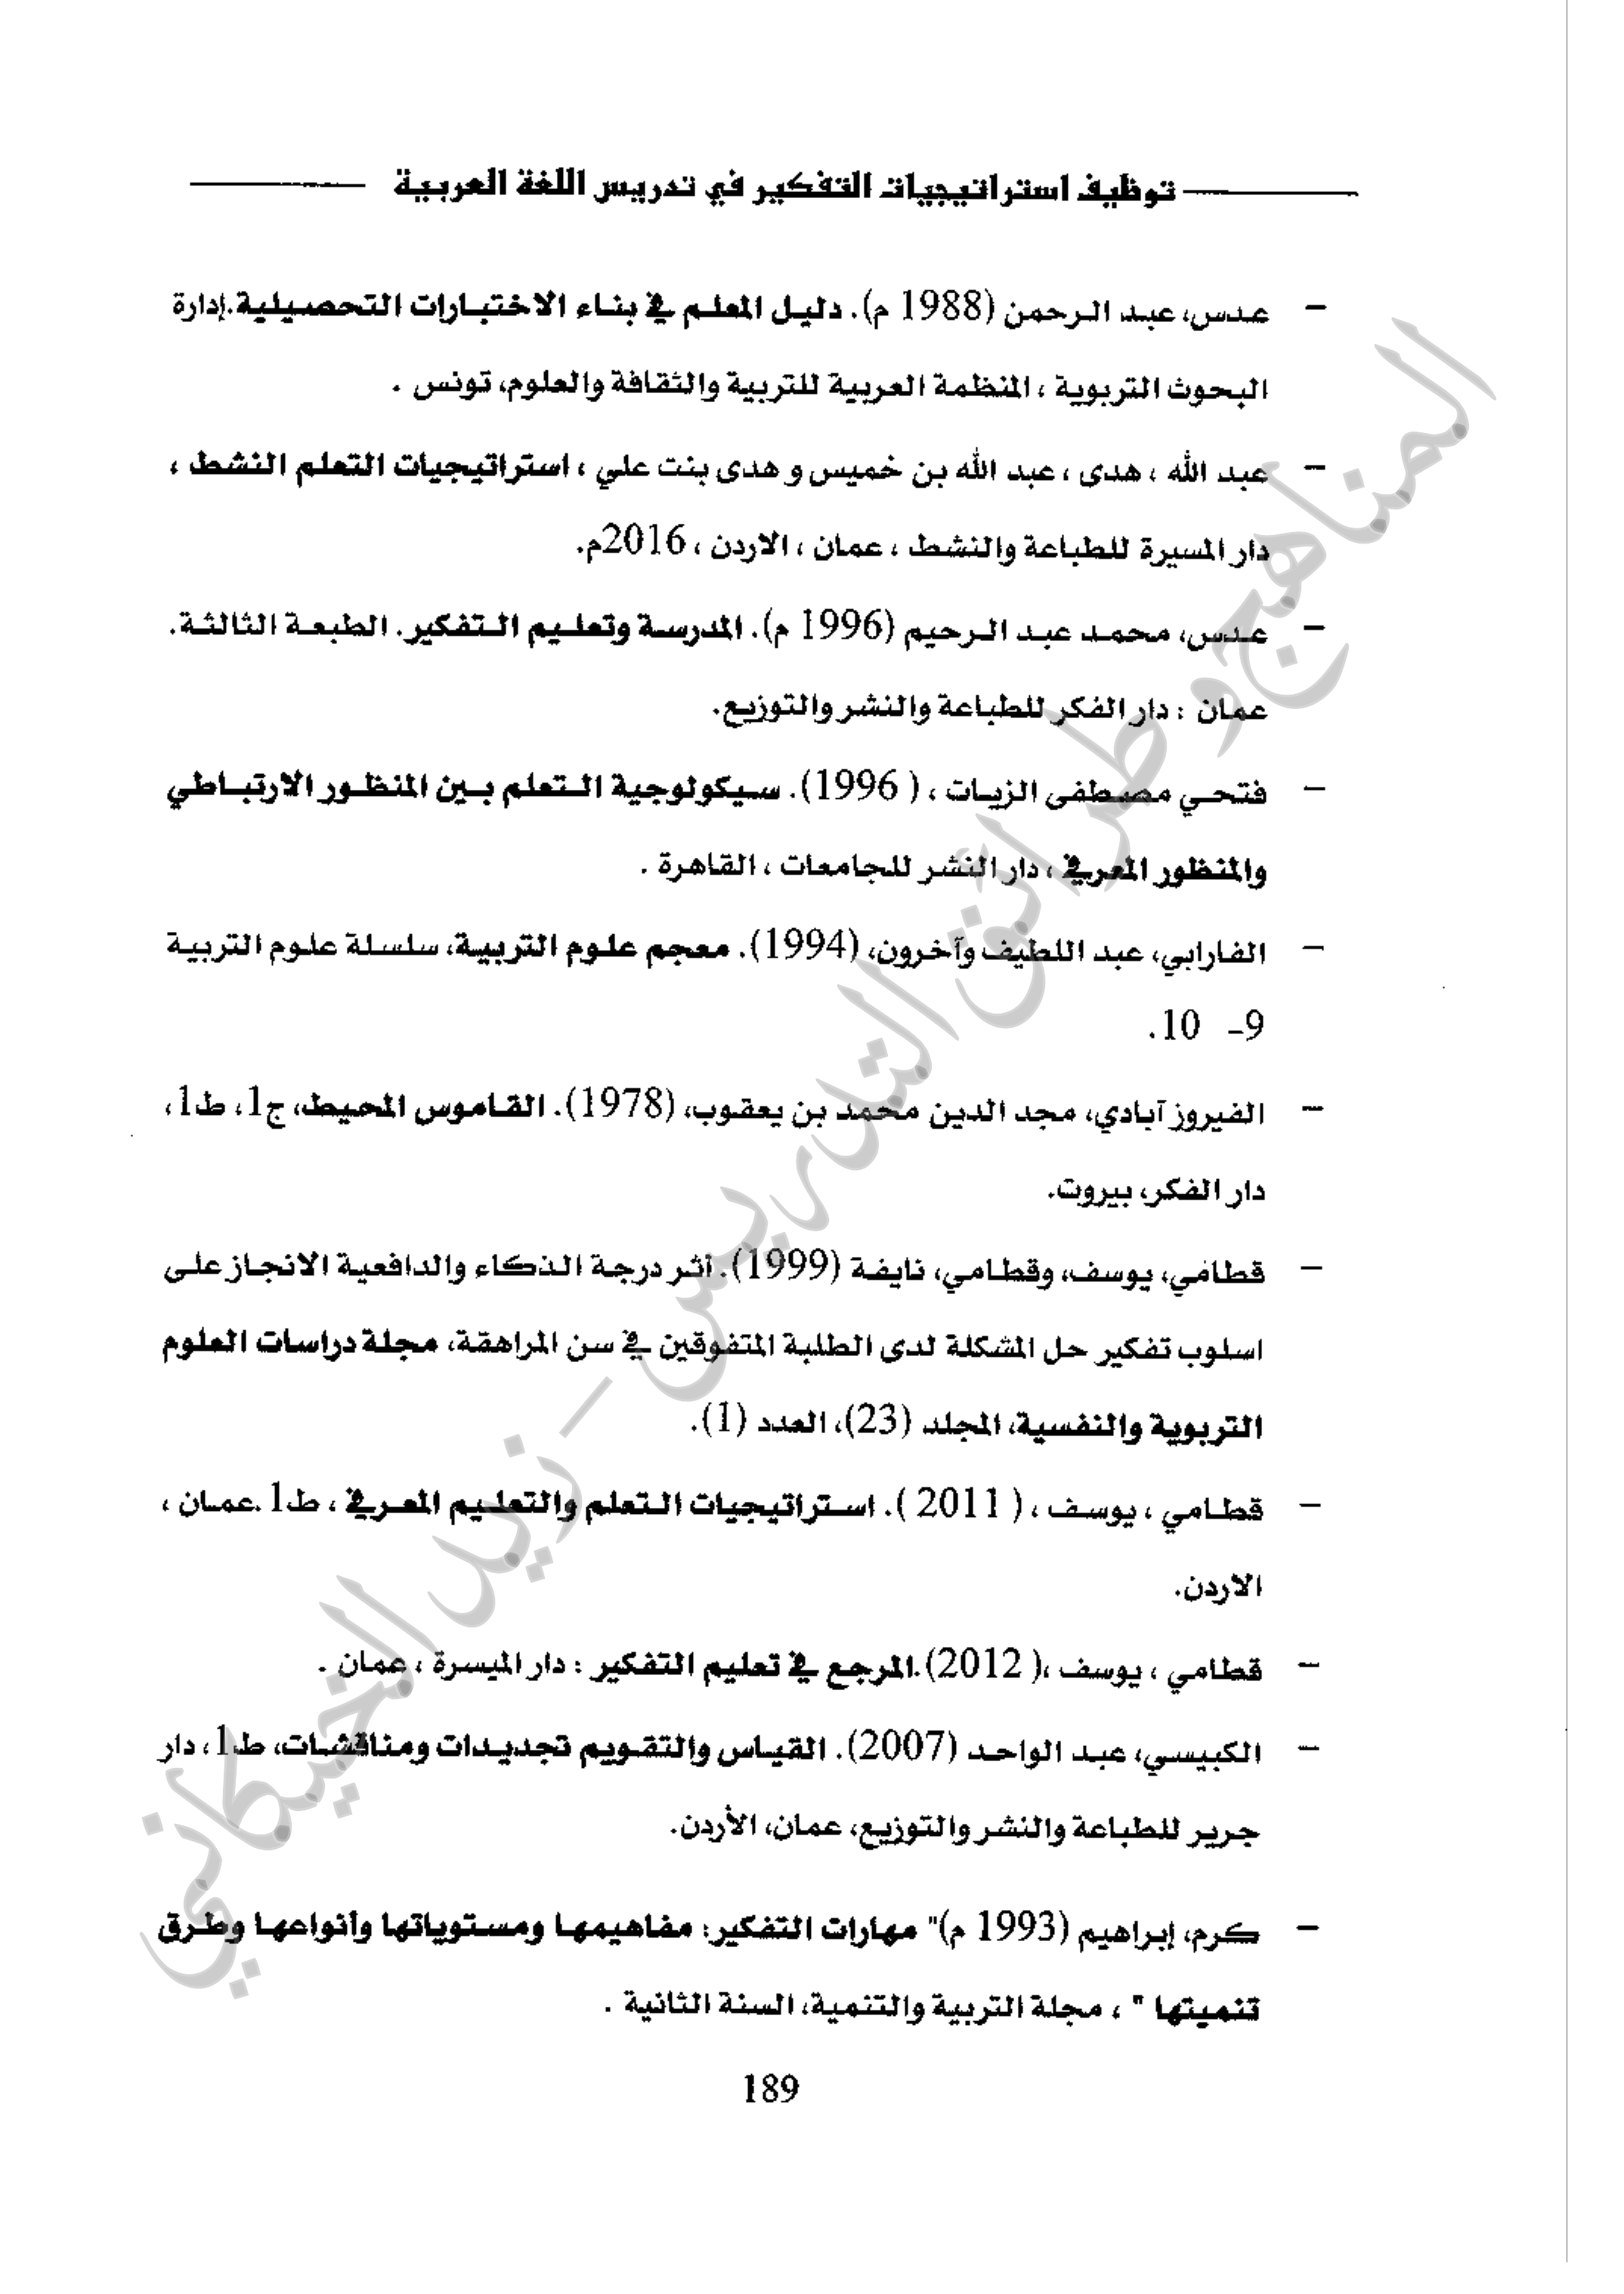 توظيف استراتيجيات التفكير في تدريس اللغة العربية
– عدس، عبد الرحمن (1988 م). دليل المعلم في بناء الاختبارات التحصيلية.إدارة
البحوث التربوية ، المنظمة العربية للتربية والثقافة والعلوم، تونس .
– عبد الله ، هدى ، عبد الله بن خميس و هدى بنت علي ، استراتيجيات التعلم النشط ،
دار المسيرة للطباعة والنشط ، عمان ، الاردن ، 2016م.
– عدس، محمد عبد الرحيم (1996 م). المدرسة وتعليم التفكير. الطبعة الثالثة.
عمان : دار الفكر للطباعة والنشر والتوزيع.
– فتحي مصطفى الزيات ، ( 1996). سيكولوجية التعلم بين المنظور الارتباطي
والمنظور المعرفي ، دار النشر للجامعات ، القاهرة .
– الفارابي، عبد اللطيف وآخرون، (1994). معجم علوم التربية، سلسلة علوم التربية
9– 10.
– الفيروز آبادي، مجد الدين محمد بن يعقوب، (1978). القاموس المحيط، ج1، ط1،
دار الفكر، بيروت.
– قطامي، يوسف، وقطامي، نايفة (1999). أثر درجة الذكاء والدافعية الانجاز على
اسلوب تفكير حل المشكلة لدى الطلبة المتفوقين في سن المراهقة، مجلة دراسات العلوم
التربوية والنفسية، المجلد (23)، العدد (1).
– قطامي ، يوسف ، ( 2011 ). استراتيجيات التعلم والتعليم المعرفي ، ط1 .عمان ،
الاردن.
– قطامي ، يوسف ،( 2012).المرجع في تعليم التفكير : دار الميسرة ، عمان .
– الكبيسي، عبد الواحد (2007). القياس والتقويم تجديدات ومناقشات، ط1، دار
جرير للطباعة والنشر والتوزيع، عمان، الأردن.
– كرم، إبراهيم (1993 م)" مهارات التفكير: مفاهيمها ومستوياتها وأنواعها وطرق
تنميتها " ، مجلة التربية والتنمية، السنة الثانية .
189
المناهج وطرائق التدريس – زيد الخيكاني